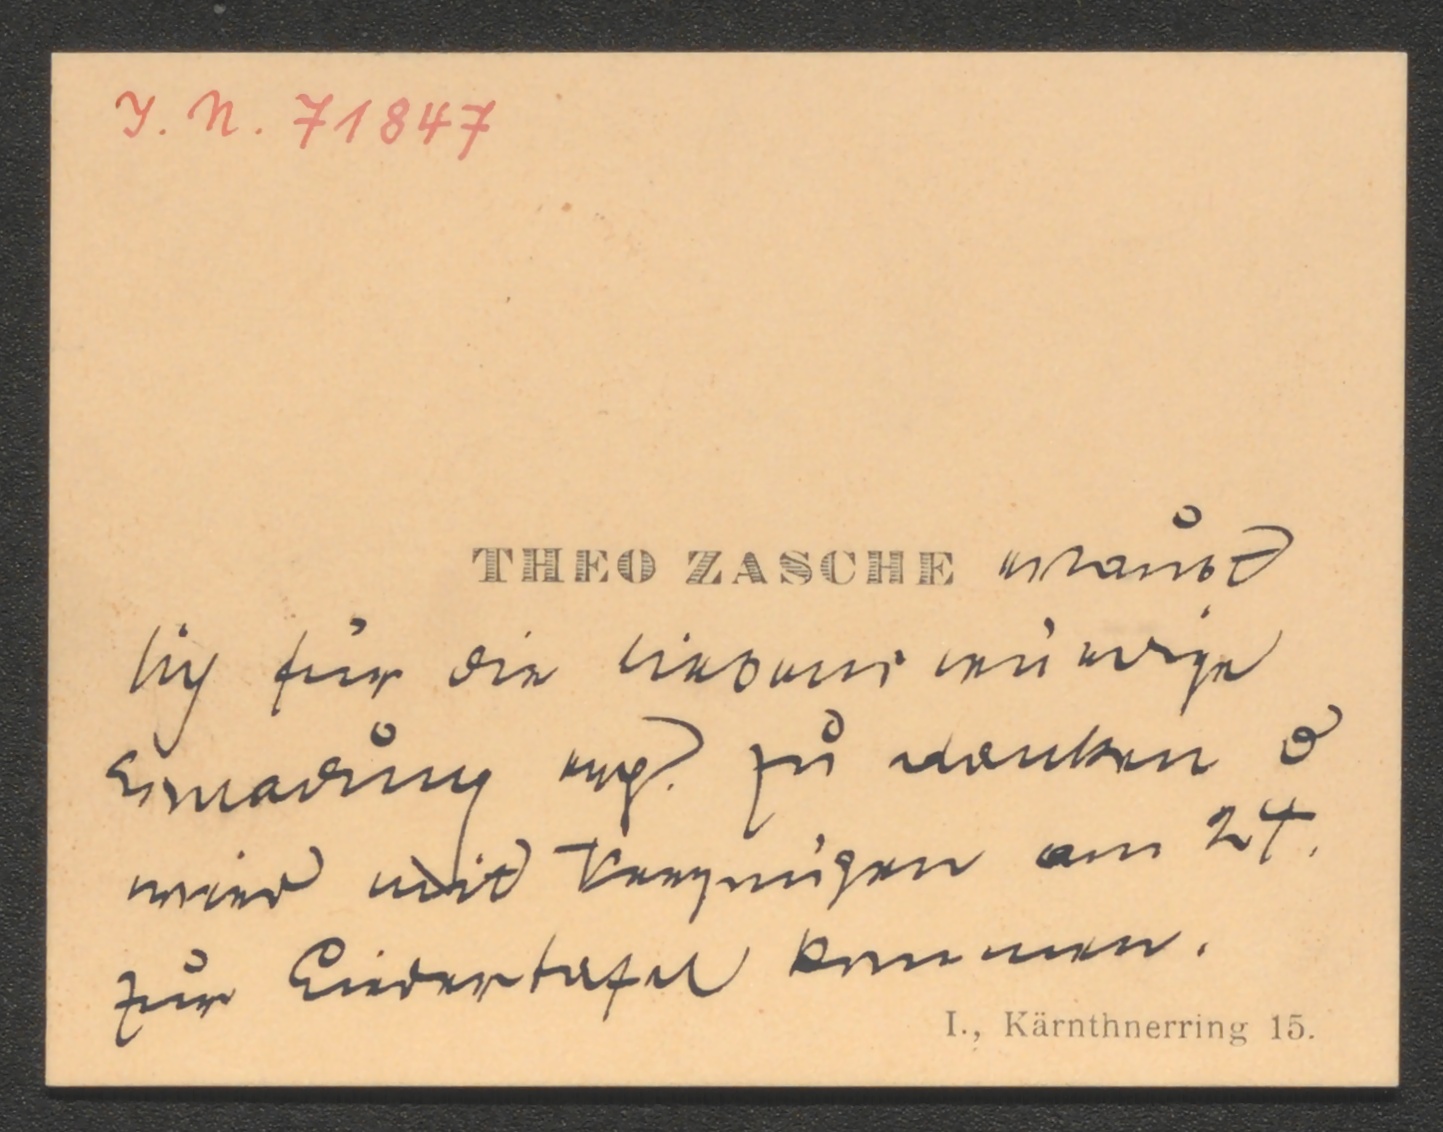 J. N. 71847
THEO ZASCHE erlaubt
sich für die liebenswürdige
Einladung erg. zu danken &
wird mit Vergnügen am 24.
zur Liedertafel kommen.
I., Kärnthnerring 15.